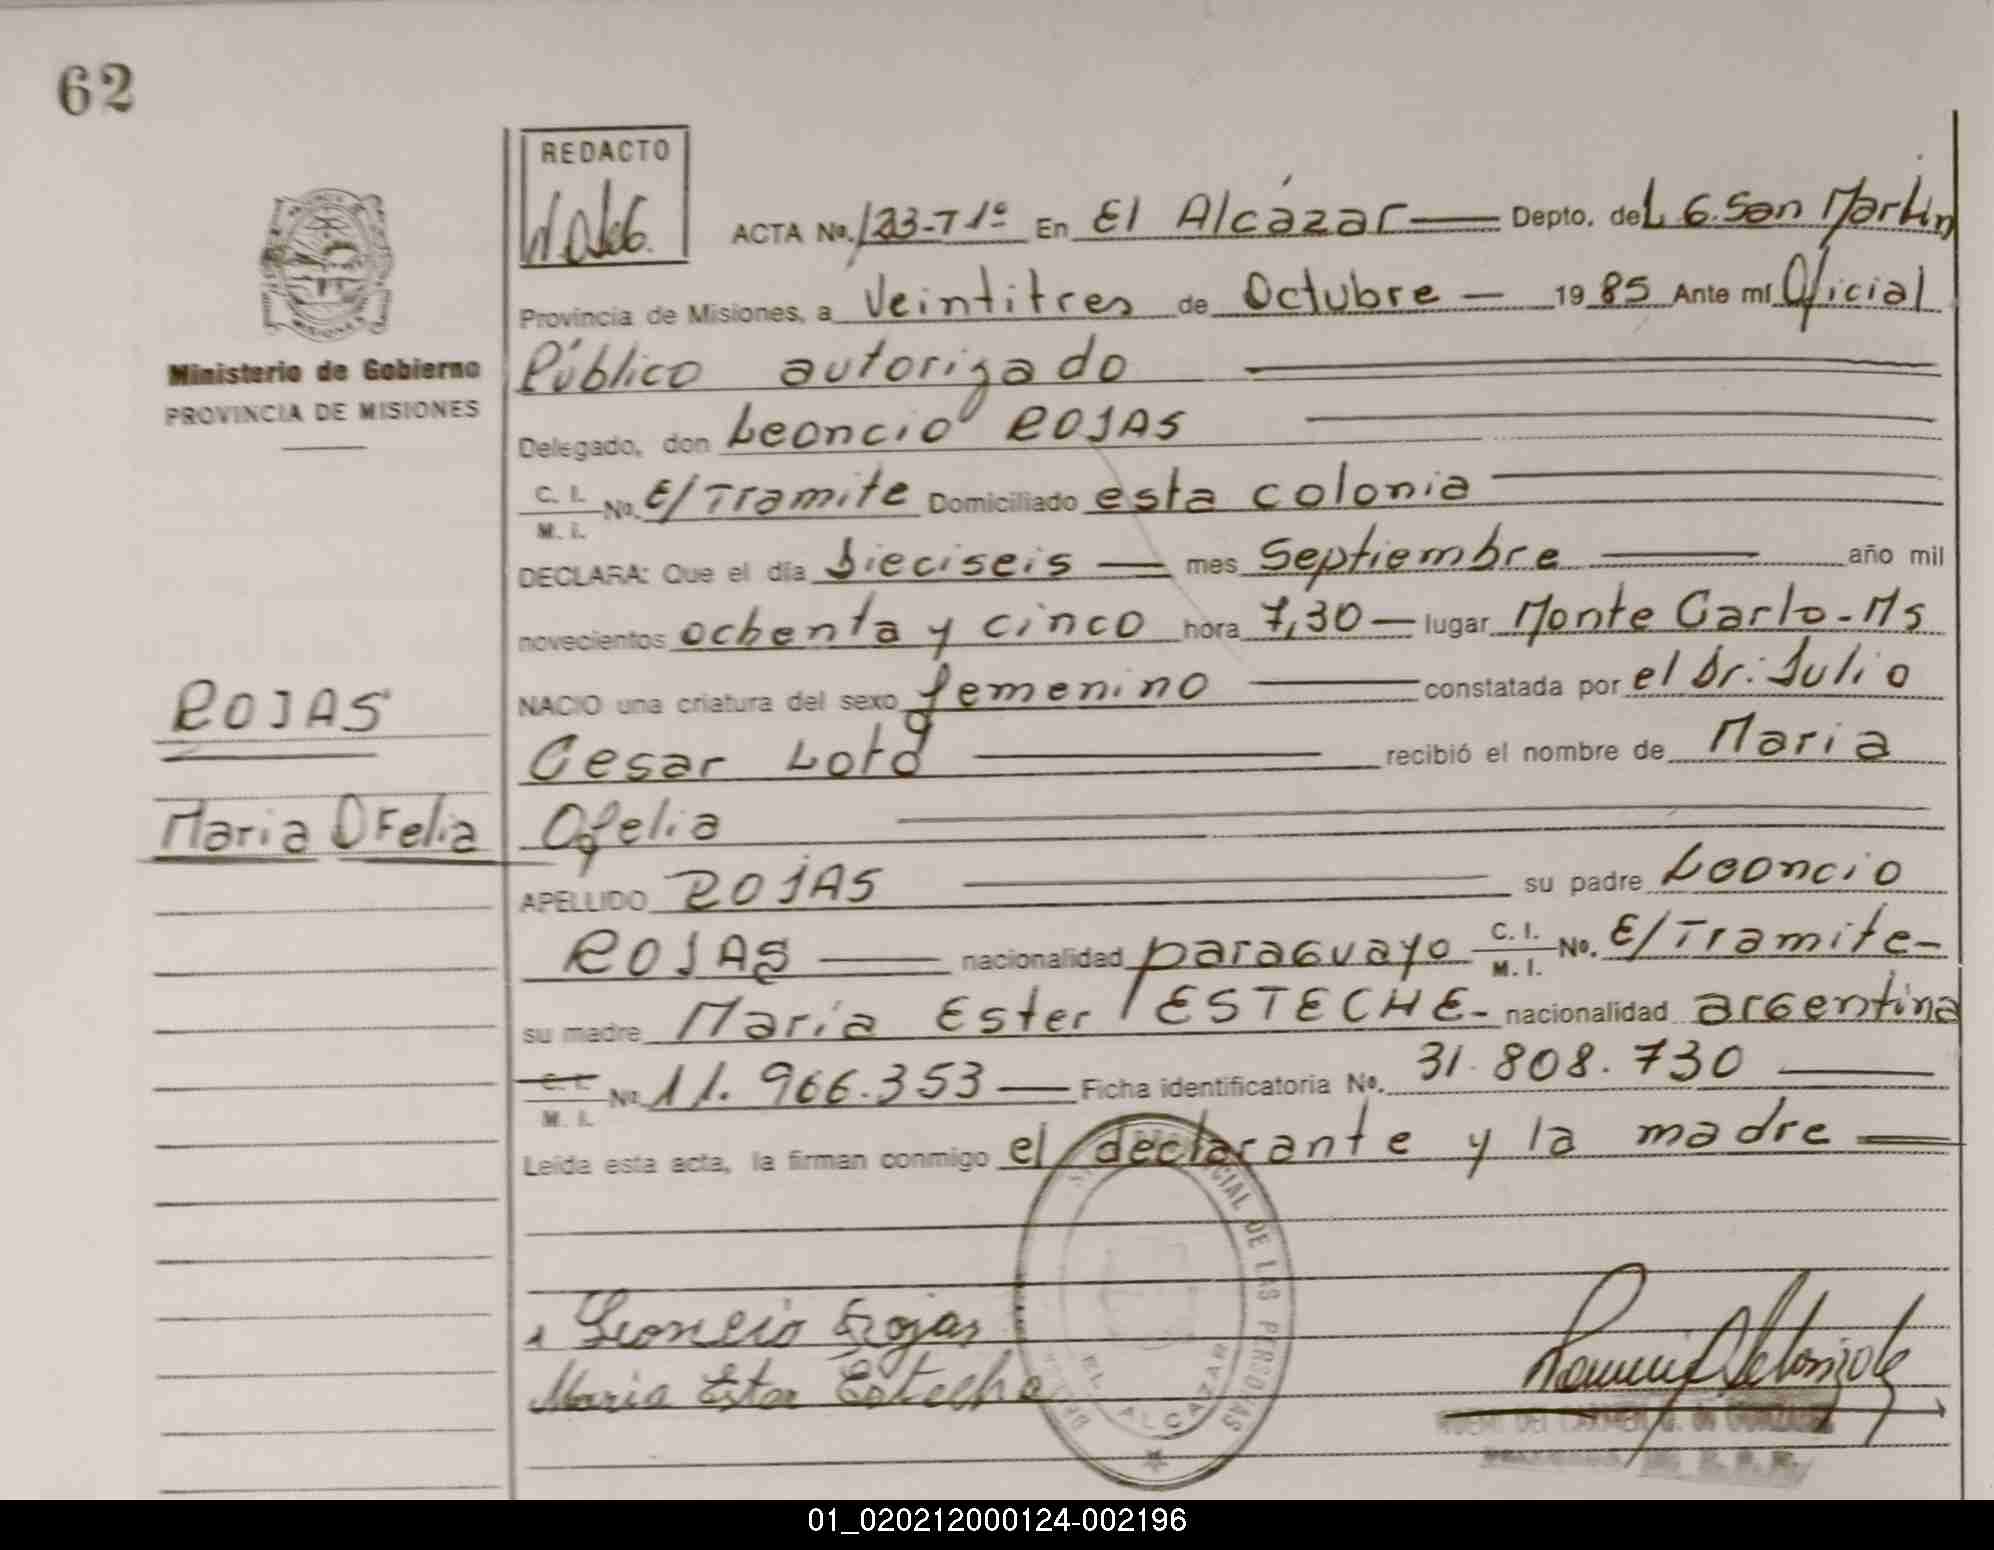 62
REDACTO
ACTA No. 123-T 1º En El Alcázar Depto. de L G. San Martin
Provincia de Misiones, a Veintitres de Octubre 19 85 Ante mí Oficial
Ministerio de Gobierno
PROVINCIA DE MISIONES
Público autorizado
Delegado, don Leoncio ROJAS
C. I.
M. I. No. E/Tramite Domiciliado esta colonia
DECLARA: Que el día Dieciseis mes Septiembre año mil
novecientos ochenta y cinco hora 7,30 lugar Monte Carlo-Ms
NACIO una criatura del sexo femenino constatada por el Dr. Julio
ROJAS
Cesar Lotd recibió el nombre de Maria
Maria OFelia
Ofelia
APELLIDO ROJAS su padre Leoncio
ROJAS nacionalidad paraguayo C. I.
M. I. No. E/Tramite-
su madre María Ester ESTECHE- nacionalidad argentina
C. I.
M. I. No. 11.966.353 Ficha identificatoria No. 31.808.730
Leída esta acta, la firman conmigo el declarante y la madre
Leoncio Rojas
Maria Ester Esteche
CIAL DE LAS PERSONAS
EL ALCAZAR
01_020212000124-002196